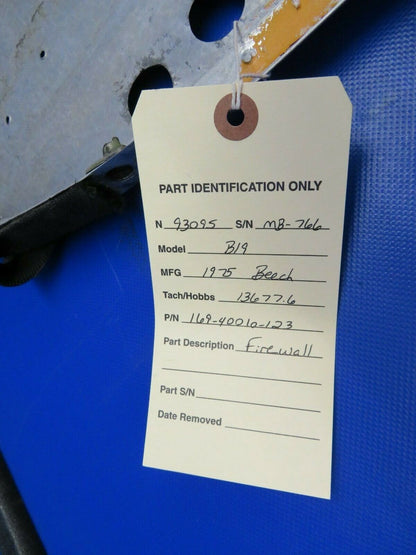 PART IDENTIFICATION ONLY
N 93095 S/N MB-766
Model B19
MFG 1975 Beech
Tach/Hobbs 13677.6
P/N 169-40010-123
Part Description Firewall
Part S/N
Date Removed